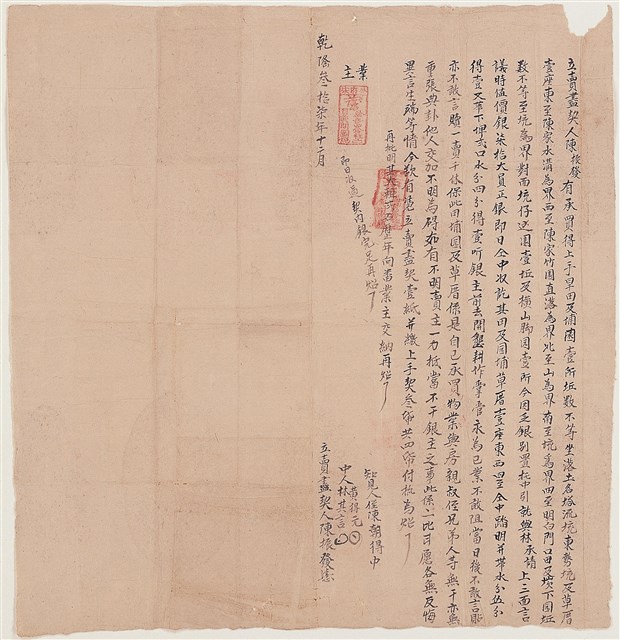 立賣盡契人陳振發有承買得上手旱田及埔園壹所坵數不等坐落土名塔流坑東勢坑及草厝
壹座東至陳家水溝為界西至陳家竹圍直落為界北至山為界南至坑為界四至明白門口田及墘下園坵
數不等至坑為界對面坑仔迎園壹坵及橫山腳園壹所今因乏銀別置托中引就與林承請上三面言
議時值價銀柒拾大員正銀即日仝中收訖其田及園埔草厝壹座東西四至仝中踏明并帶水分
得壹又草下埤 口水分四分得壹听銀主前去開墾耕作掌管永為己業不敢阻當日後不敢言
亦不敢言贖一賣千休保此田埔園及草厝係是自己承買物業與房親叔侄兄弟人等無干亦無
重張典卦他人交加不明為碍如有不明賣主一力抵當不干銀主之事此係二比甘愿各無反悔
異言生端等情今欲有憑立賣盡契壹紙并繳上手契叁帋共四帋付執為炤
再批明其大租 年向番業主交納再炤
即日收過契內銀完足再炤
業
主
乾隆叁拾柒年十二月
知見人侄陳朝得
中人黃得元
林其言
立賣盡契人陳振發